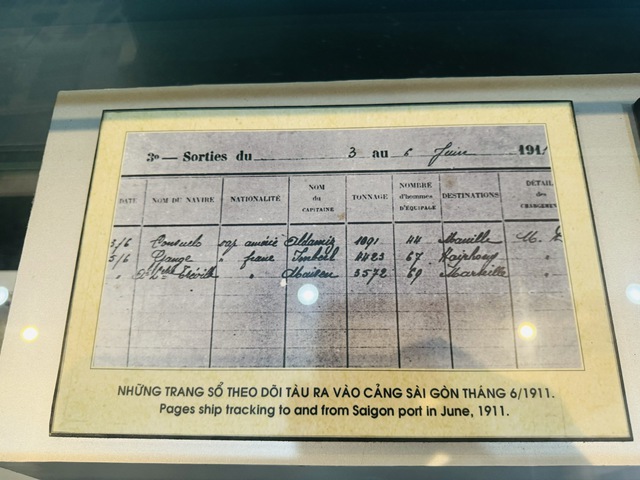 3º — Sorties du 3 au 6 Juin 1911
DATE NOM DU NAVIRE NATIONALITÉ NOM du CAPITAINE TONNAGE NOMBRE d'hommes D'ÉQUIPAGE DESTINATIONS DÉTAIL des CHARGEMENT
3/6 Consuelo vap améric Aldamiz 1091 44 Manille M.
5/6 Gange " franc Imbert 4423 67 Haiphong "
" Tréville " Maisen 3572 69 Marseille "
NHỮNG TRANG SỔ THEO DÕI TÀU RA VÀO CẢNG SÀI GÒN THÁNG 6/1911.
Pages ship tracking to and from Saigon port in June, 1911.